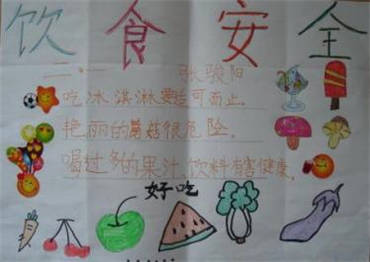 饮食安全
二·一 张骏阳
吃冰淇淋要适可而止。
艳丽的蘑菇很危险。
喝过多的果汁、饮料有害健康。
好吃